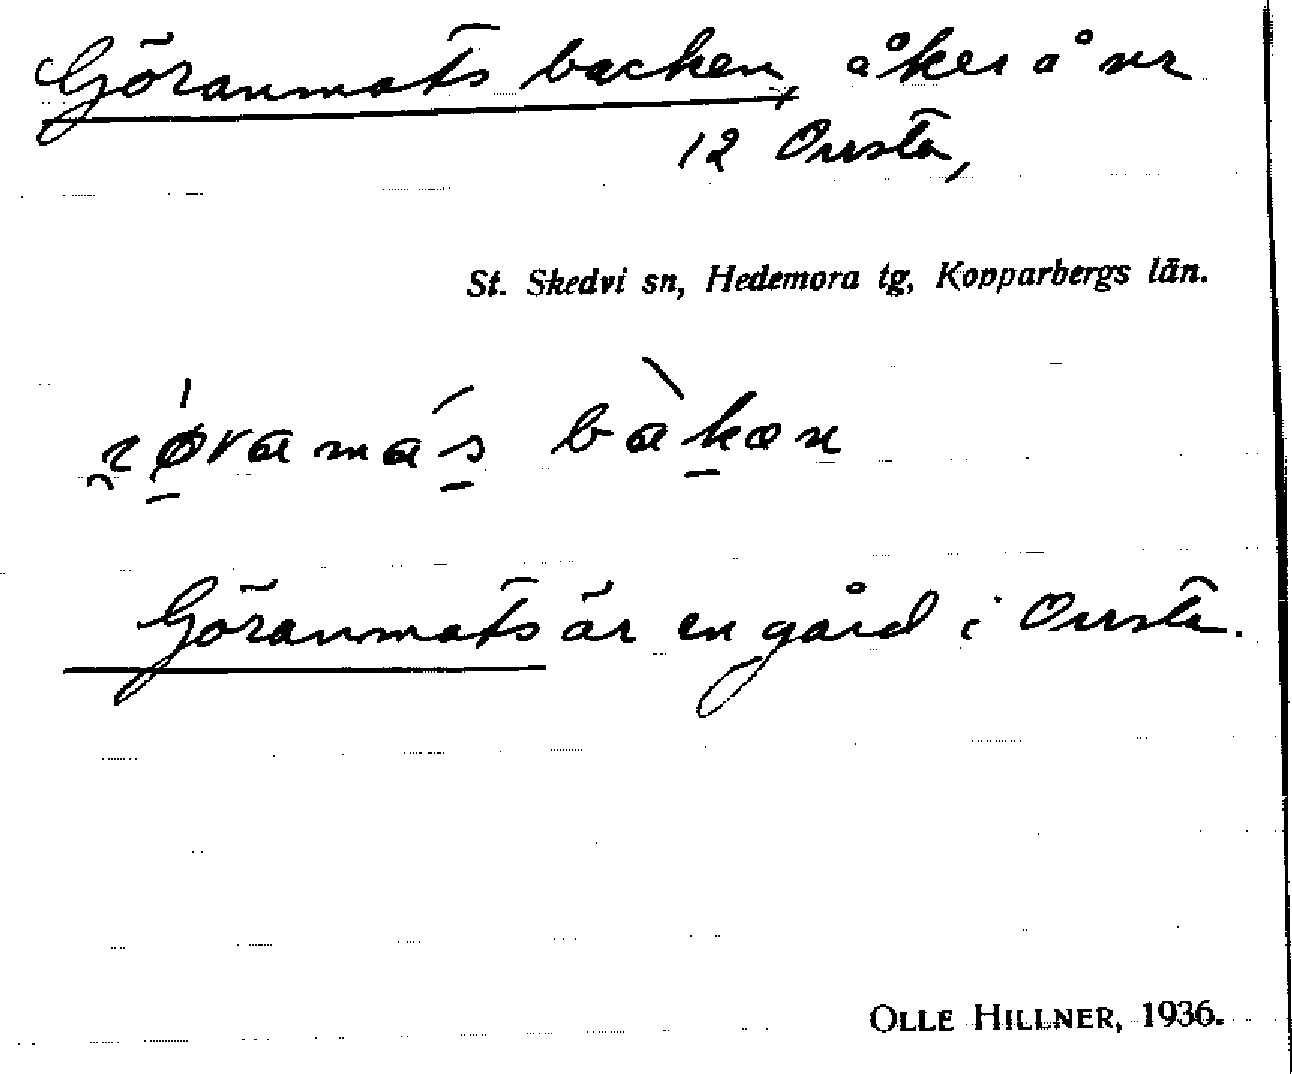 Göranmats backen, åker å nr
12 Onsta,
St. Skedvi sn, Hedemora tg, Kopparbergs län.
bàken
Göranmats är en gård i Onsta.
OLLE HILLNER, 1936.